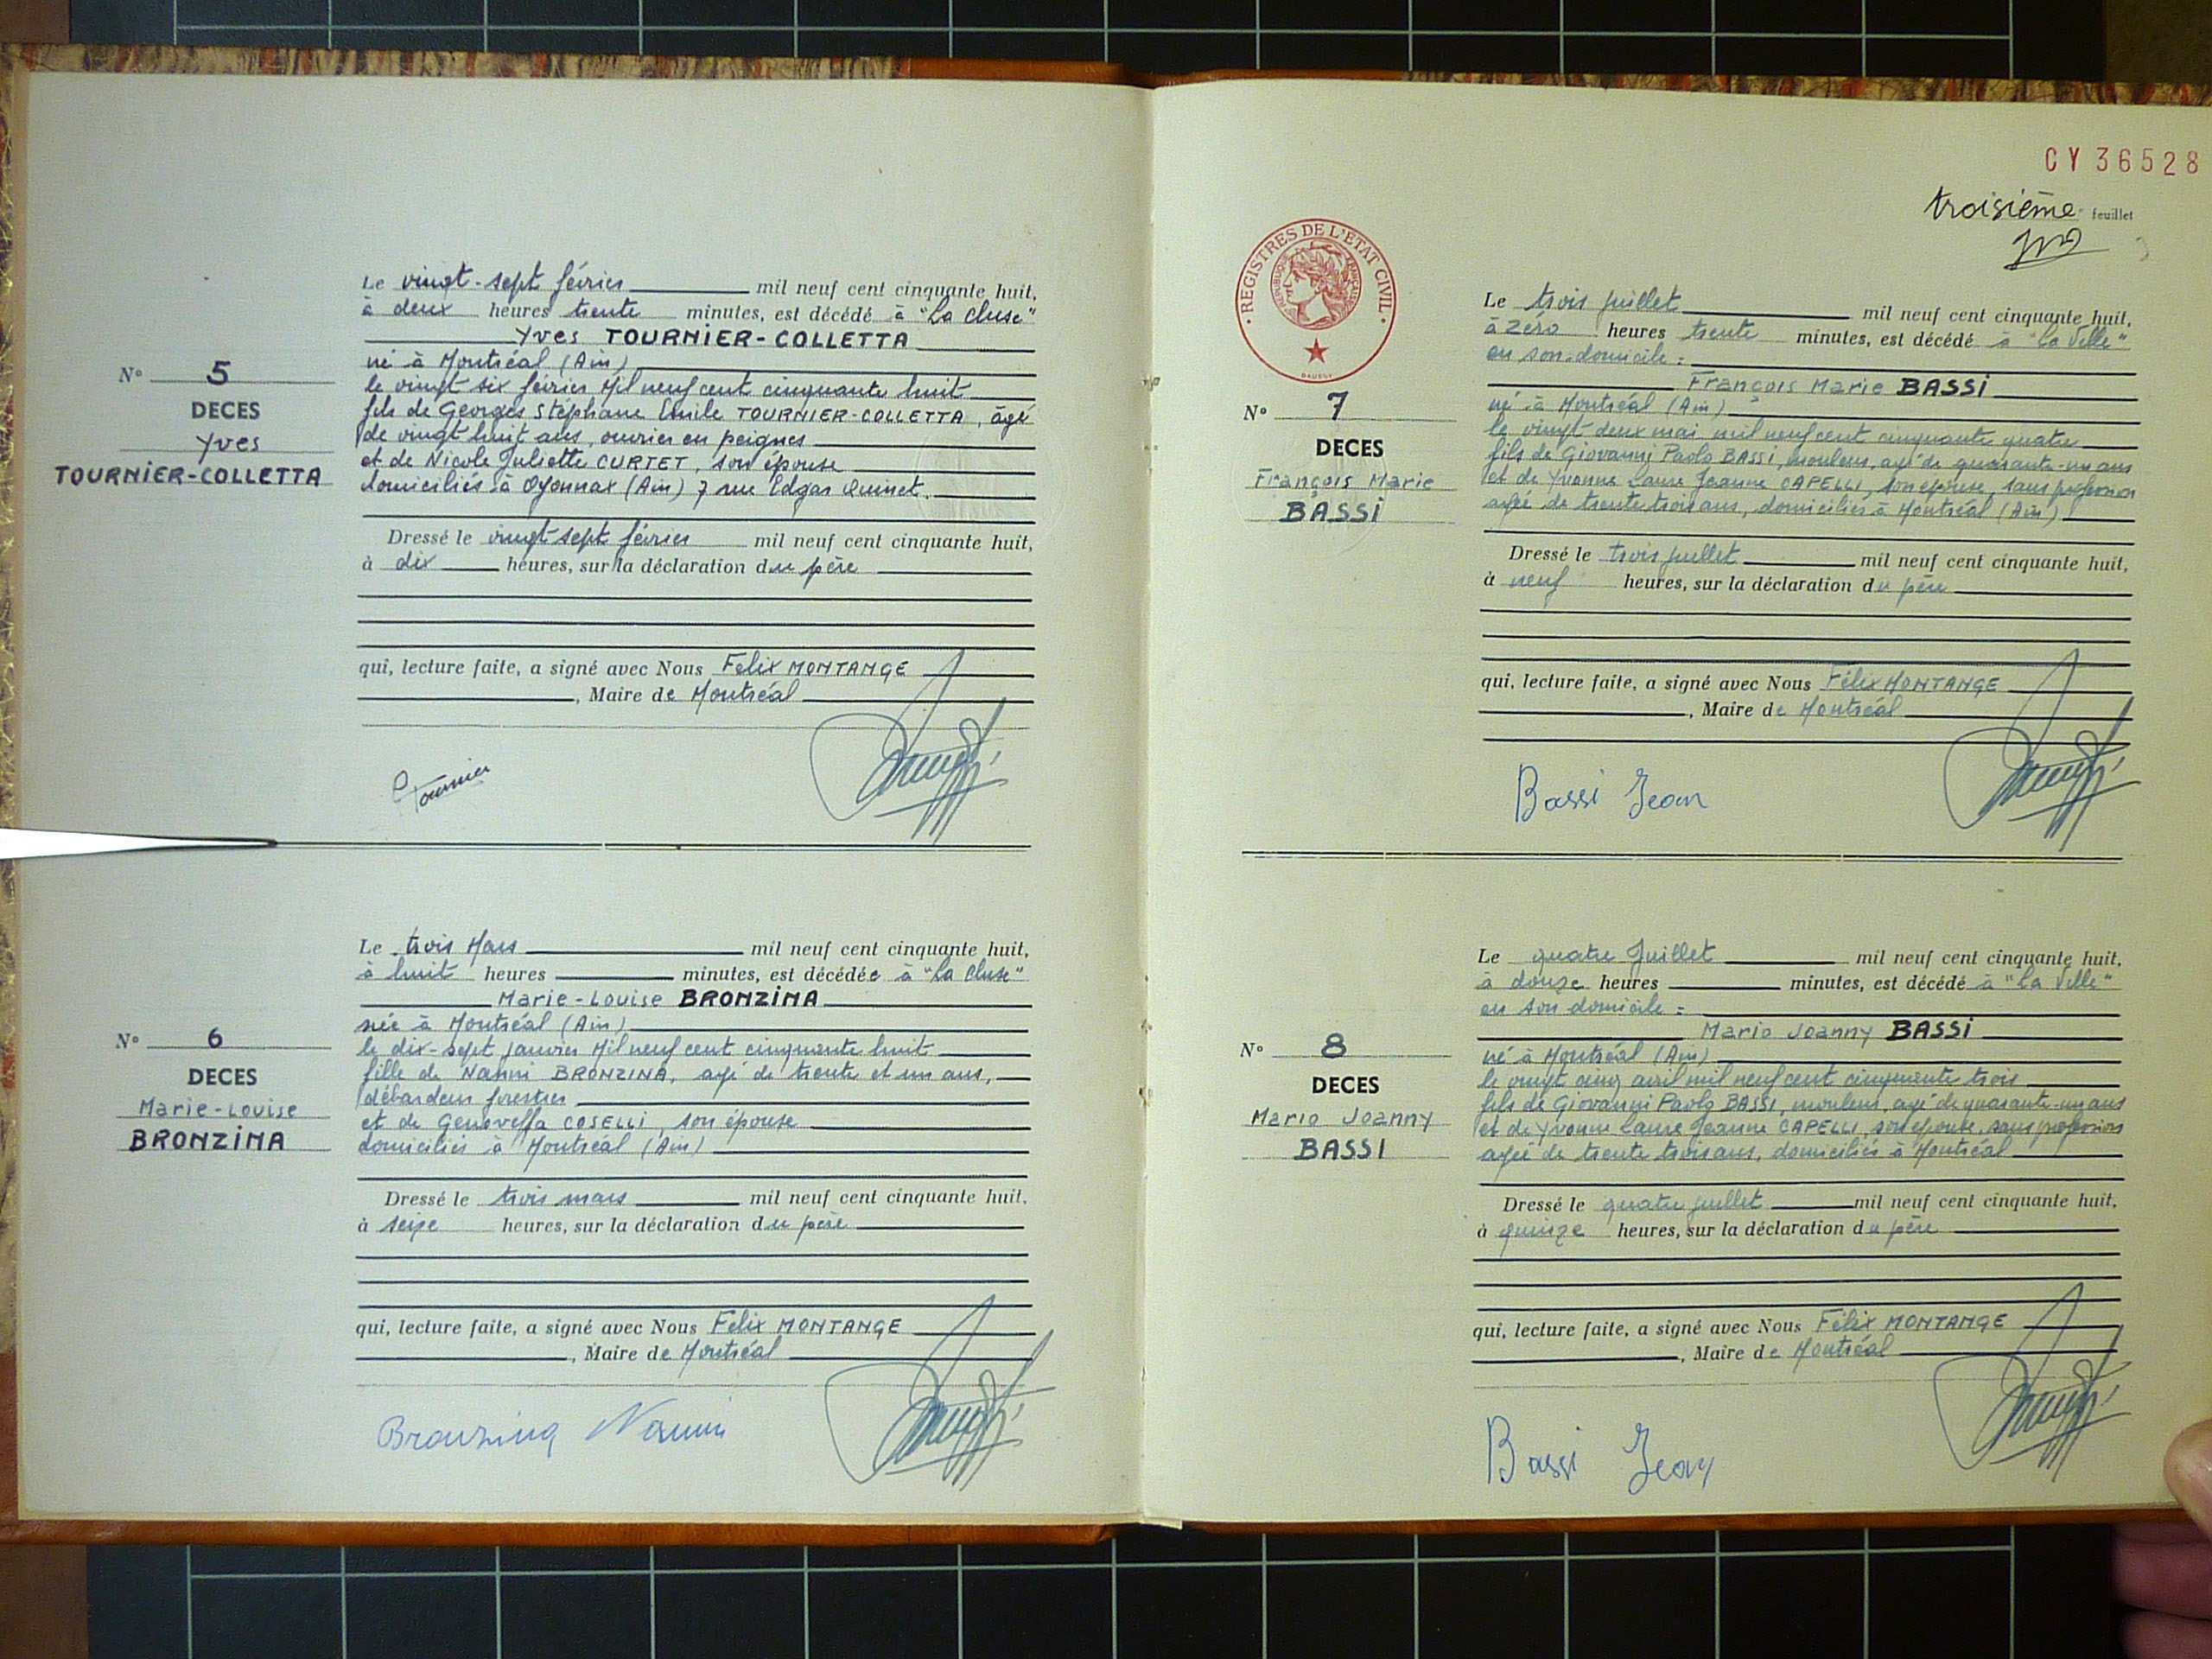 Le vingt-sept février mil neuf cent cinquante huit,
à deux heures trente minutes, est décédé à "La cluse"
Yves TOURNIER-COLLETTA
né à Montréal (Ain)
le vingt six février Mil neuf cent cinquante huit
fils de Georges Stéphane Emile TOURNIER-COLLETTA, âgé
de vingt huit ans, ouvrier en peignes
et de Nicole Juliette CURTET, son épouse
domiciliés à Oyonnax (Ain) 7 rue Edgar Quinet.
N° 5
DECES
Yves
TOURNIER-COLLETTA
Dressé le vingt sept février mil neuf cent cinquante huit,
à dix heures, sur la déclaration du père
qui, lecture faite, a signé avec Nous Felix MONTANGE
, Maire de Montréal
Tournier
Le trois Mars mil neuf cent cinquante huit,
à huit heures minutes, est décédée à "La cluse"
Marie-Louise BRONZINA
née à Montréal (Ain)
le dix-sept janvier Mil neuf cent cinquante huit
fille de Nanni BRONZINA, agé de trente et un ans,
débardeur forestier
et de Genoveffa COSELLI, son épouse
domiciliés à Montréal (Ain)
N° 6
DECES
Marie-Louise
BRONZINA
Dressé le trois mars mil neuf cent cinquante huit,
à seize heures, sur la déclaration du père
qui, lecture faite, a signé avec Nous Felix MONTANGE
, Maire de Montréal
Bronzina Nanni
CY 36528
troisième feuillet
REGISTRES DE L'ETAT CIVIL
REPUBLIQUE FRANÇAISE
DAUSSY
Le trois juillet mil neuf cent cinquante huit,
à zéro heures trente minutes, est décédé à "La Ville"
en son domicile :
François Marie BASSI
né à Montréal (Ain)
le vingt deux mai mil neuf cent cinquante quatre
fils de Giovanni Paolo BASSI, mouleur, agé de quarante-un ans
et de Yvonne Laure Jeanne CAPELLI, son épouse, sans profession
agée de trente trois ans, domiciliés à Montréal (Ain)
N° 7
DECES
François Marie
BASSI
Dressé le trois juillet mil neuf cent cinquante huit,
à neuf heures, sur la déclaration du père
qui, lecture faite, a signé avec Nous Félix MONTANGE
, Maire de Montréal
Bassi Jean
Le quatre Juillet mil neuf cent cinquante huit,
à douze heures minutes, est décédé à "La Ville"
en son domicile :
Mario Joanny BASSI
né à Montréal (Ain)
le vingt cinq avril mil neuf cent cinquante trois
fils de Giovanni Paolo BASSI, mouleur, agé de quarante-un ans
et de Yvonne Laure Jeanne CAPELLI, son épouse, sans profession
agée de trente trois ans, domiciliés à Montréal
N° 8
DECES
Mario Joanny
BASSI
Dressé le quatre juillet mil neuf cent cinquante huit,
à quinze heures, sur la déclaration du père
qui, lecture faite, a signé avec Nous Félix MONTANGE
, Maire de Montréal
Bassi Jean